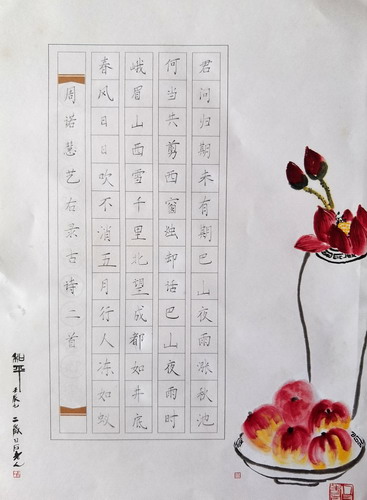 君问归期未有期巴山夜雨涨秋池
何当共剪西窗烛却话巴山夜雨时
峨眉山西雪千里北望成都如井底
春风日日吹不消五月行人冻如蚁
周诺慧艺右录古诗二首